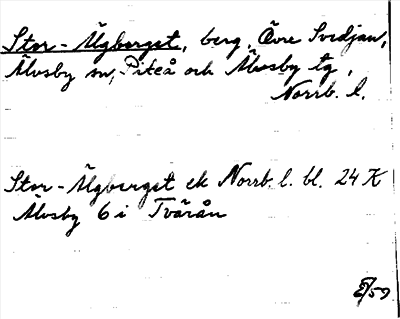 Stor-Älgberget, berg, Övre Svedjan,
Älvsby sn, Piteå och Älvsby tg,
Norrb. l.
Stor-Älgberget ek Norrb. l. bl. 24 K
Älvsby 6 i Tvärån
/59